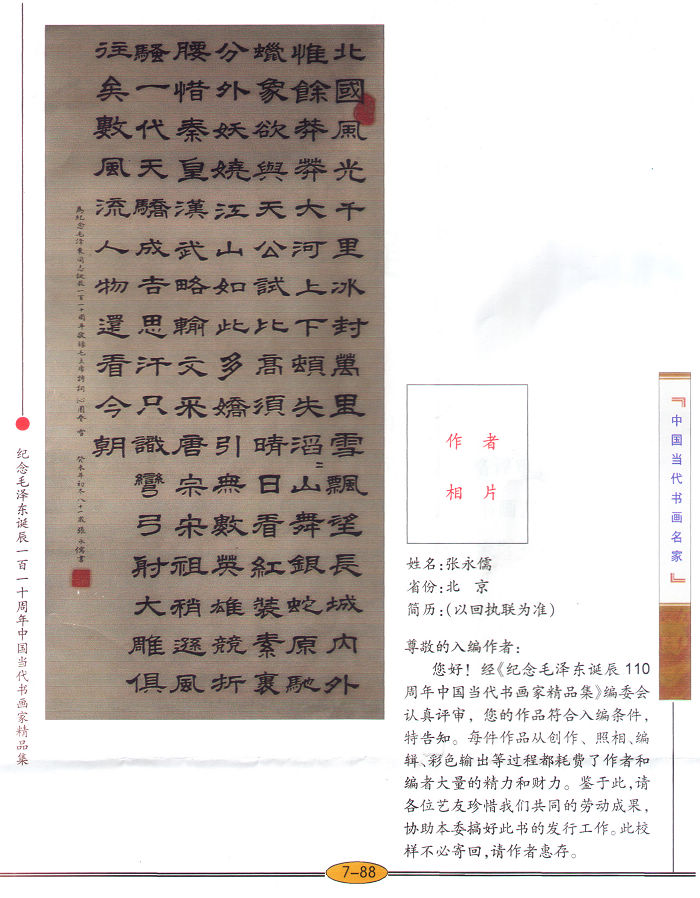 北國風光千里冰封萬里雪飄望長城內外
惟餘莽莽大河上下頓失滔〻山舞銀蛇原馳
蠟象欲與天公試比高須晴日看紅裝素裹
分外妖嬈江山如此多嬌引無數英雄競折
腰惜秦皇漢武略輸文采唐宗宋祖稍遜風
騷一代天驕成吉思汗只識彎弓射大雕俱
往矣數風流人物還看今朝
為紀念毛澤東同志誕辰一百一十周年敬錄毛主席詩詞 沁園春 雪 癸未年初冬八十一歲張永儒書
纪念毛泽东诞辰一百一十周年中国当代书画家精品集
作 者
相 片
『中国当代书画名家』
姓名:张永儒
省份:北 京
简历:(以回执联为准)
尊敬的入编作者:
您好! 经《纪念毛泽东诞辰 110
周年中国当代书画家精品集》编委会
认真评审，您的作品符合入编条件,
特告知。每件作品从创作、照相、编
辑、彩色输出等过程都耗费了作者和
编者大量的精力和财力。鉴于此,请
各位艺友珍惜我们共同的劳动成果,
协助本委搞好此书的发行工作。此校
样不必寄回,请作者惠存。
7-88